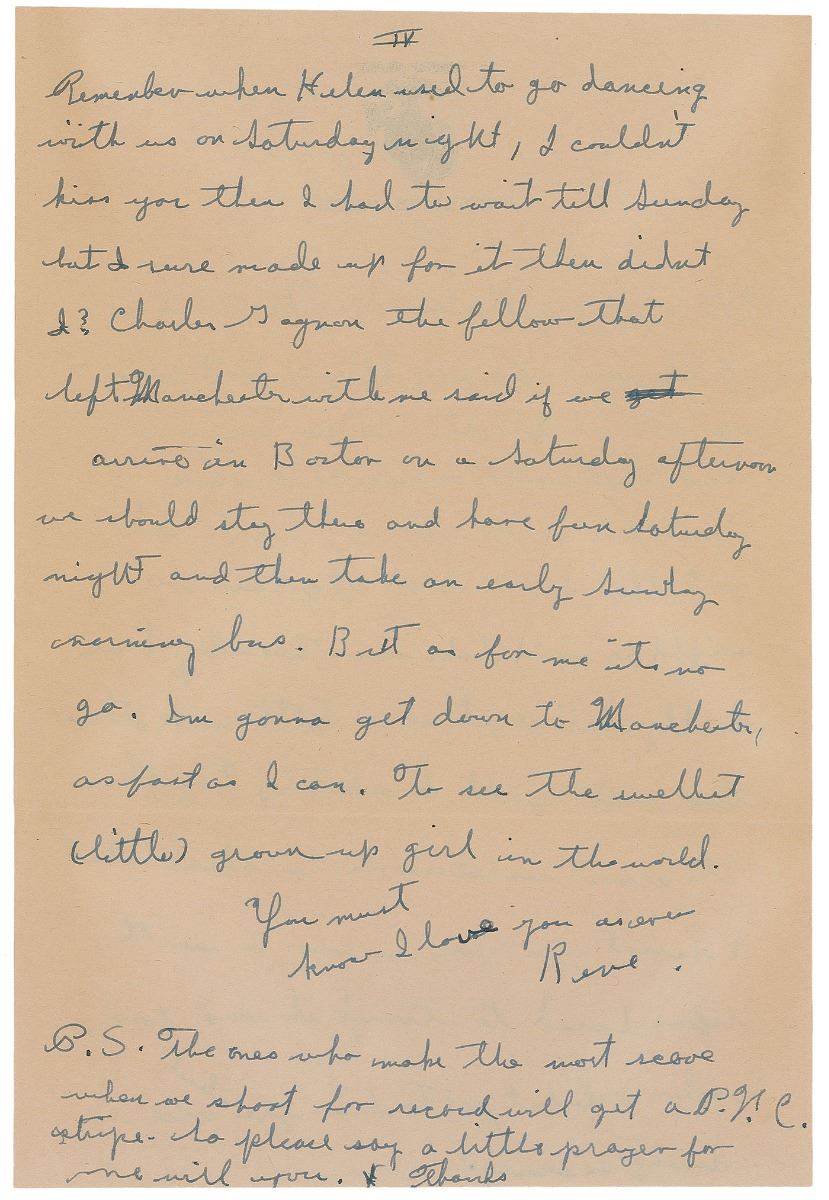 IV
Remember when Helen used to go dancing
with us on Saturday night, I couldn't
kiss you then I had to wait till Sunday
but I sure made up for it then didnt
I? Charles Gagnon the fellow that
left Manchester with me said if we get
arrive in Boston on a Saturday afternoon
we should stay there and have fun Saturday
night and then take an early Sunday
morning bus. But as for me its no
go. Im gonna get down to Manchester,
as fast as I can. To see the swellest
(little) grown-up girl in the world.
You must
know I love you as ever
Rene.
P.S. The ones who make the most score
when we shoot for record will get a P.F.C.
stripe. So please say a little prayer for
me will you. Thanks